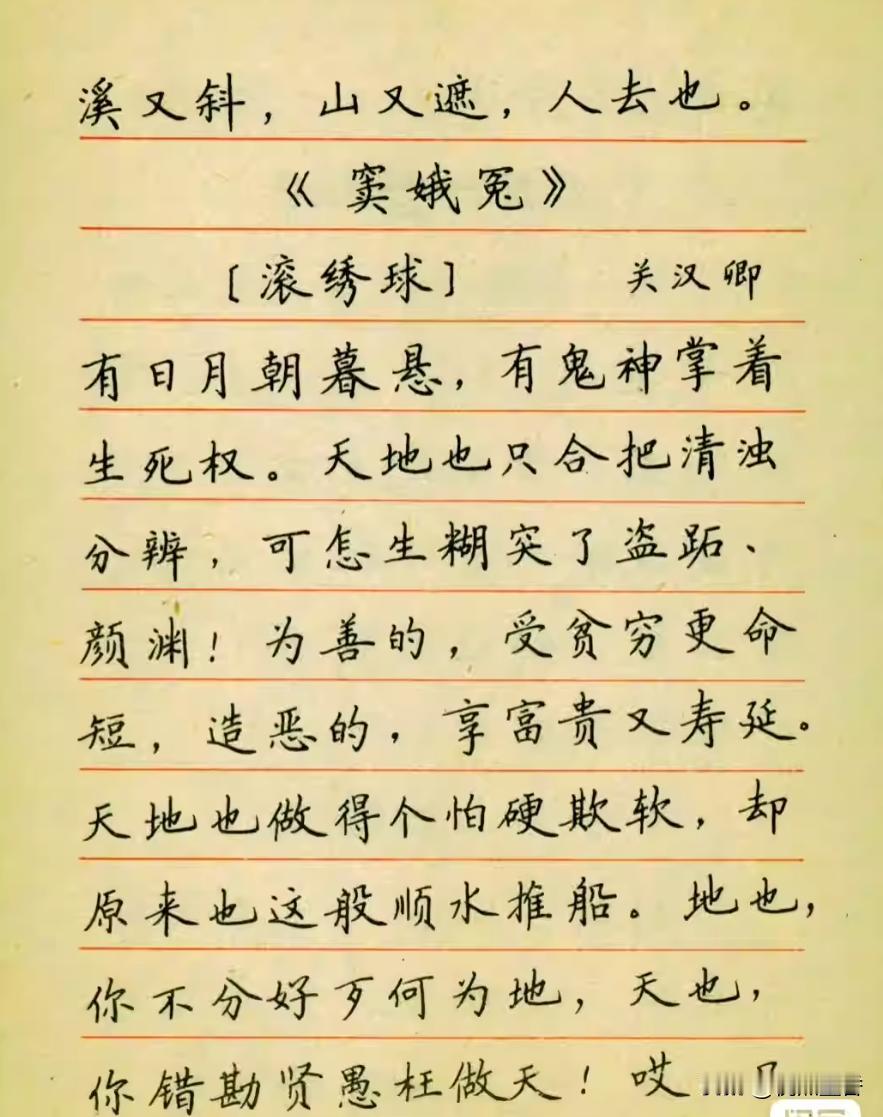 溪又斜，山又遮，人去也。
《窦娥冤》
［滚绣球］ 关汉卿
有日月朝暮悬，有鬼神掌着
生死权。天地也只合把清浊
分辨，可怎生糊突了盗跖、
颜渊！为善的，受贫穷更命
短，造恶的，享富贵又寿延。
天地也做得个怕硬欺软，却
原来也这般顺水推船。地也，
你不分好歹何为地，天也，
你错勘贤愚枉做天！哎